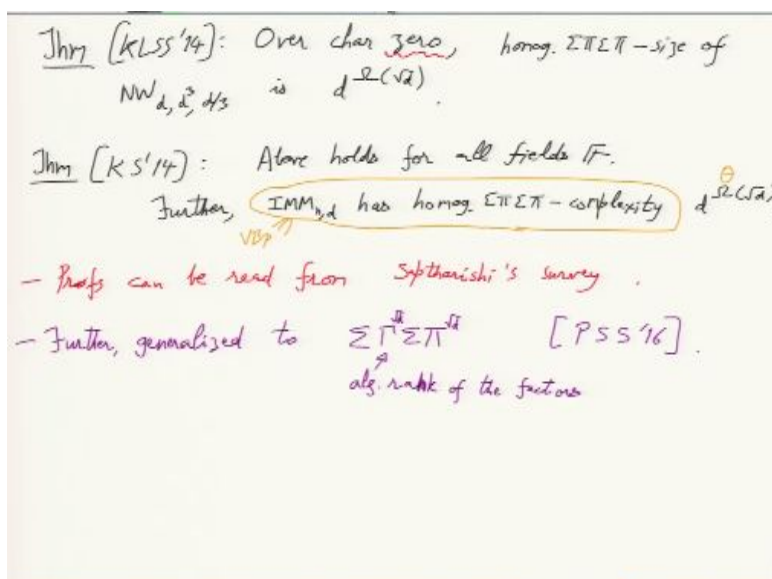 Thm [KLSS'14]: Over char zero, homog. ΣΠΣΠ-size of
NW_{d, d^3, d/3} is d^{Ω(√d)}.
Thm [KS'14]: Above holds for all fields 𝔽.
Further, IMM_{n,d} has homog. ΣΠΣΠ-complexity d^{Ω(√d)}
Θ
VBP
- Proofs can be read from Saptharishi's survey.
- Further, generalized to ΣΓ^{√d}ΣΠ^{√d} [PSS'16].
alg. rank of the factors